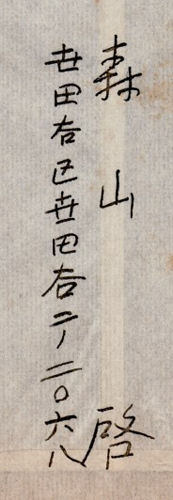 森山 啓
世田谷区世田谷二ノ二〇六八